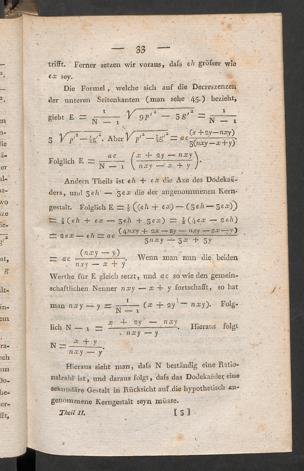 — 33 —
trifft. Ferner setzen wir voraus, daſs eh gröſser wie
ex sey.
Die Formel, welche sich auf die Decreszenzen
der unteren Seitenkanten (man sehe 45.) bezieht,
giebt E = 1/(N — 1) √(9p'² — 3g'²) = 1/(N — 1)
3 √(p'² — ⅓g'²). Aber √(p'² — ⅓g'²) = ac (x + 2y — nxy)/3(nxy — x + y)
Folglich E = ac/(N — 1) (x + 2y — nxy)/(nxy — x + y).
Andern Theils ist eh + ex die Axe des Dodekaë-
ders, und 3eh — 3ex die der angenommenen Kern-
gestalt. Folglich E = ½ ((eh + ex) — (3eh — 3ex))
= ½ (eh + ex — 3eh + 3ex) = ½ (4ex — 2eh)
= 2ex — eh = ac
= ac (nxy — y)/(nxy — x + y). Wenn man nun die beiden
Werthe für E gleich setzt, und ac so wie den gemein-
schaftlichen Nenner nxy — x + y fortschafft, so hat
man nxy — y = 1/(N — 1) (x + 2y — nxy). Folg-
lich N — 1 = (x + 2y — nxy)/(nxy — y). Hieraus folgt
N = (x + y)/(nxy — y).
Hieraus sieht man, daſs N beständig eine Ratio-
nalzahl ist, und daraus folgt, daſs das Dodekaëder eine
sekundäre Gestalt in Rücksicht auf die hypothetisch an-
genommene Kerngestalt seyn müsse.
Theil II. [3]